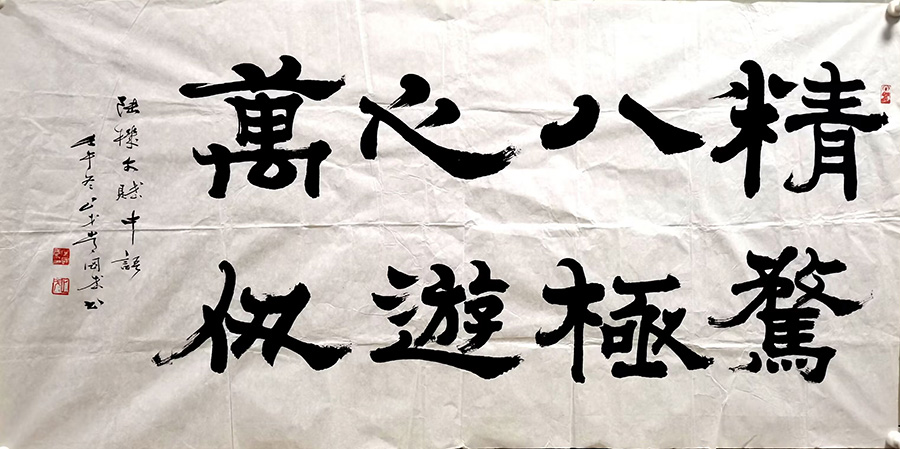 精騖
八極
心遊
萬仞
陸機文賦中語
壬午冬